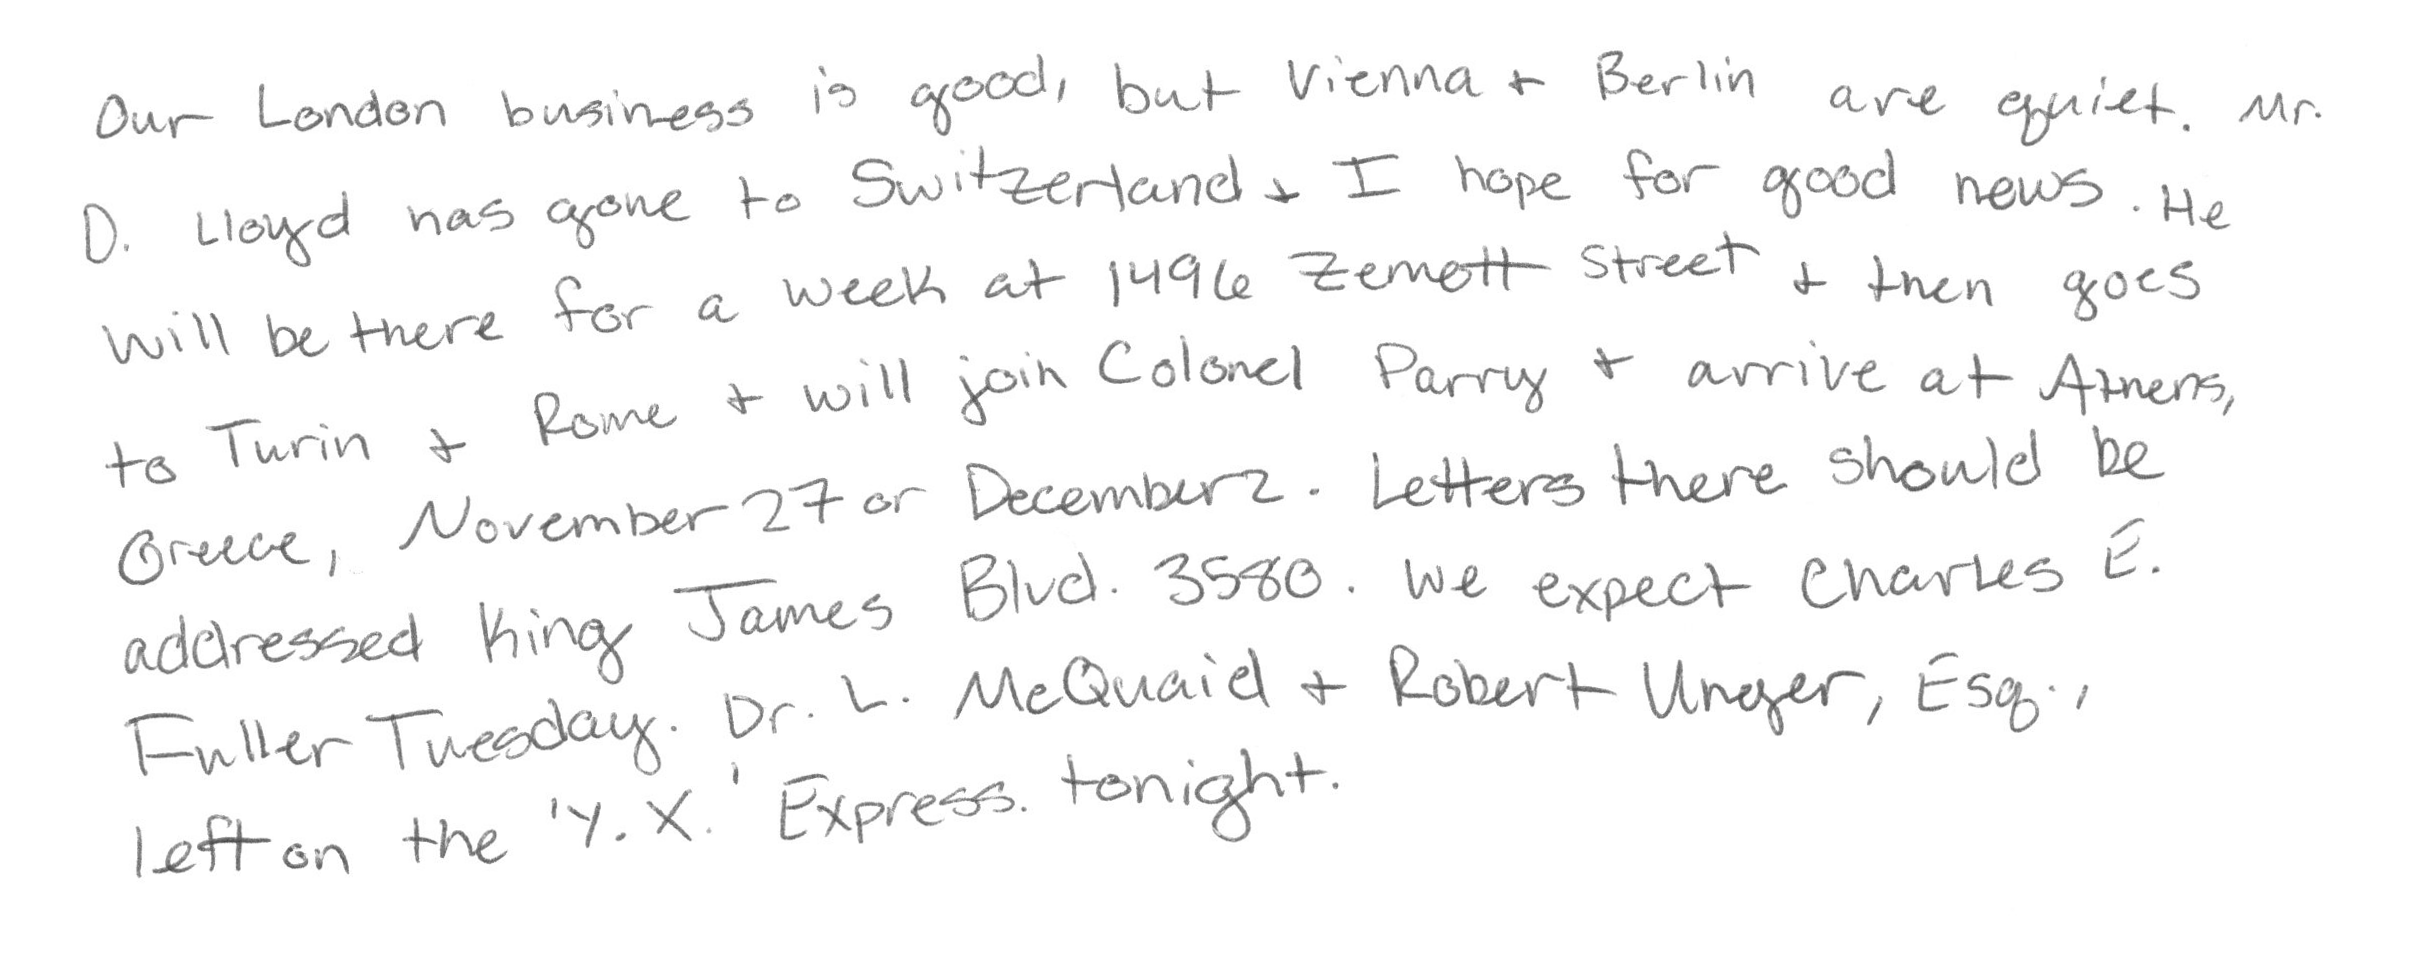 Our London business is good, but Vienna + Berlin are quiet. Mr.
D. Lloyd has gone to Switzerland + I hope for good news. He
will be there for a week at 1496 Zemott Street + then goes
to Turin + Rome + will join Colonel Parry + arrive at Athens,
Greece, November 27 or December 2. Letters there should be
addressed King James Blvd. 3580. We expect Charles E.
Fuller Tuesday. Dr. L. McQuaid + Robert Unger, Esq.,
left on the 'Y. X.' Express. tonight.